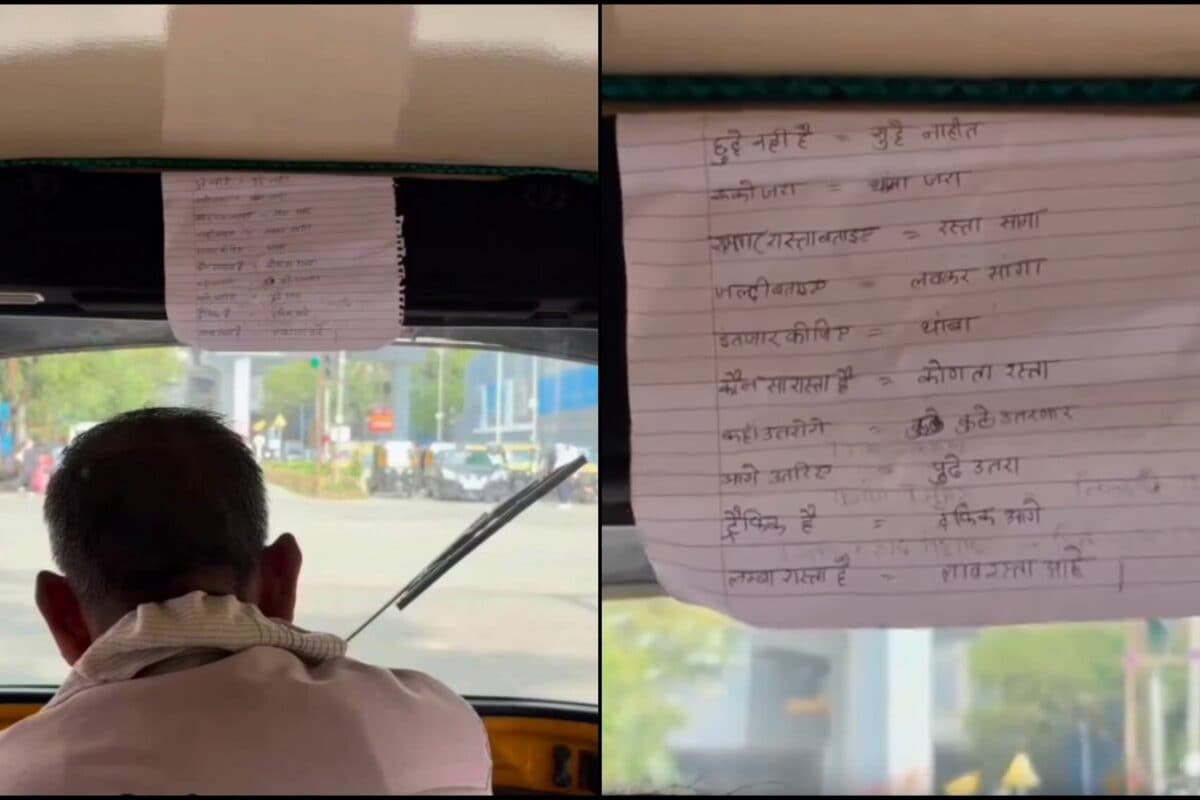 छुट्टे नही है = सुट्टे नाहीत
रुको जरा = थांबा जरा
रास्ता बताइए = रस्ता सांगा
जल्दी बताइए = लवकर सांगा
= थांबा
कौन सा रास्ता है = कोणता रस्ता
कहाँ उतरोगे = कुठे उतरणार
आगे उतरिए = पुढे उतरा
ट्रैफिक है = ट्रॅफिक आहे
लम्बा रास्ता है = रस्ता आहे